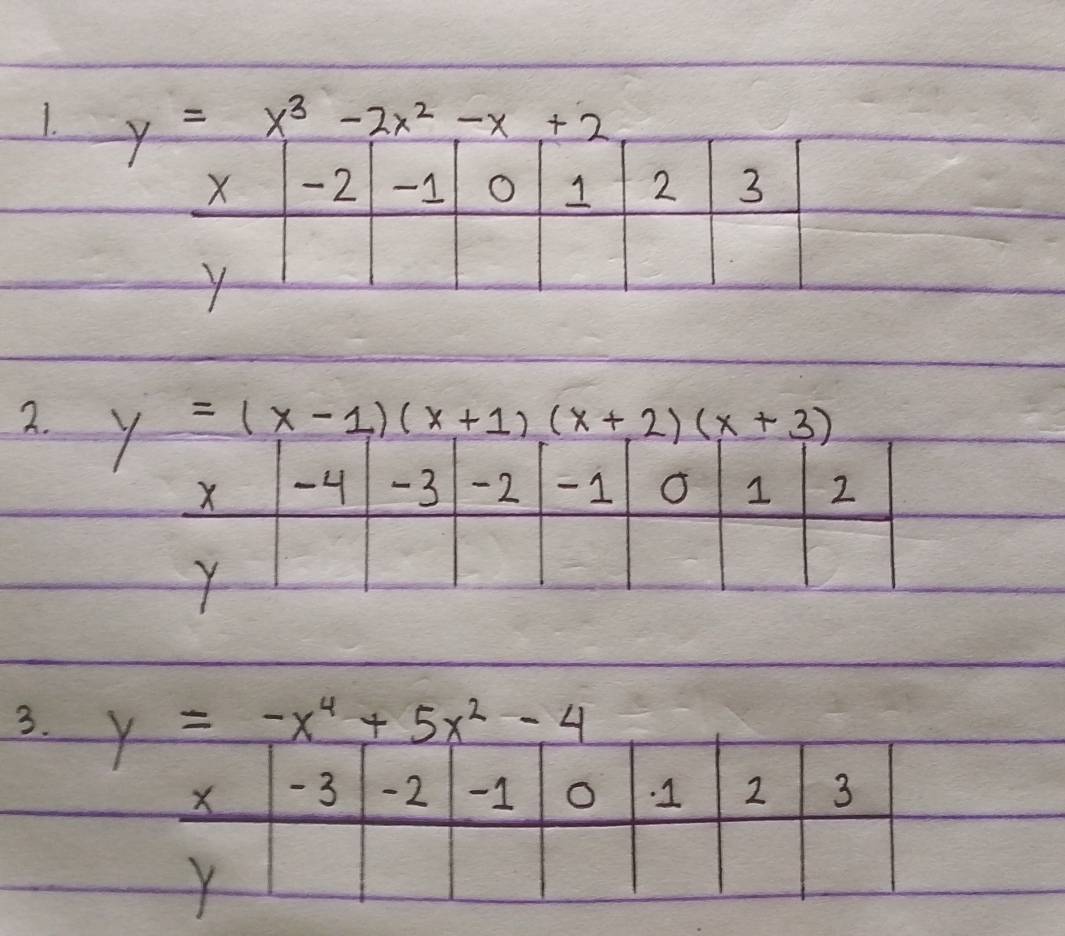 1. y = x³ -2x² -x +2
x -2 -1 0 1 2 3
y
2. y = (x-1)(x+1)(x+2)(x+3)
x -4 -3 -2 -1 0 1 2
y
3. y = -x⁴ + 5x² - 4
x -3 -2 -1 0 1 2 3
y